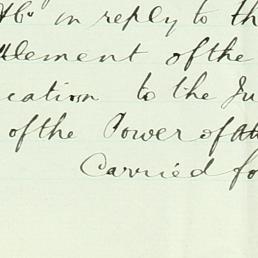 in reply to th
lement of the
cation to the Ju
of the Power of Att
Carried fo